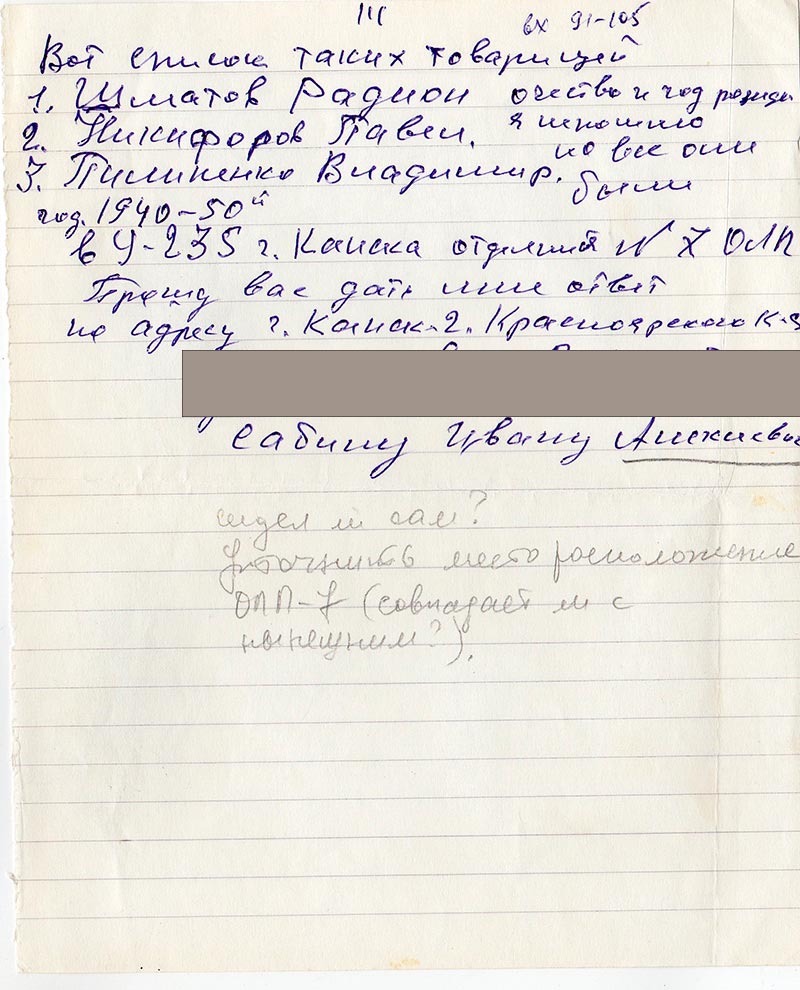 III
вх 91-105
Вот список таких товарищей
1. Шматов Радион очество и год рожде
2. Никифоров Павел. я не помню
3. Пилипенко Владимир. но все они
были
год. 1940-50й
в У-235 г. Канска отделений N 7 ОЛП
Прошу вас дать мне ответ
по адресу г. Канск-2. Красноярского К-
Сабину Ивану Алексиевич
сидел ли сам?
Уточнить место расположение
ОЛП-7 (совпадает ли с
нынешним?).